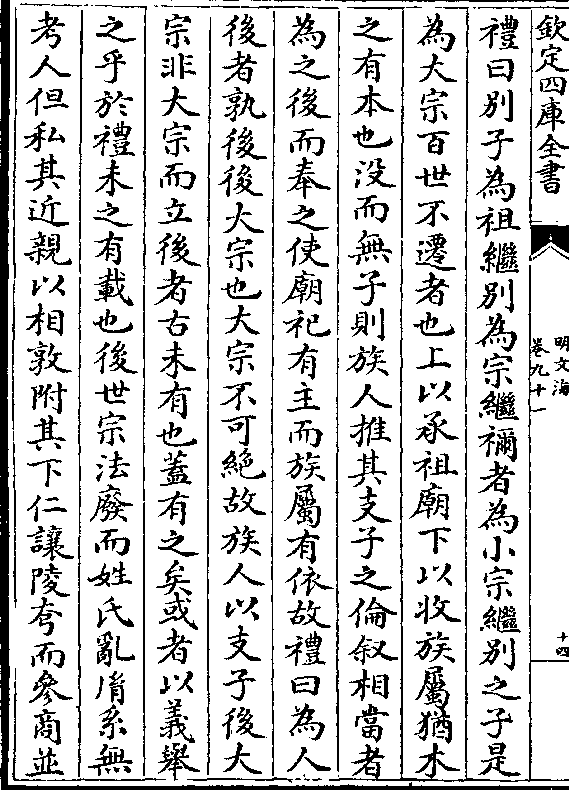 欽定四庫全書
明文海
卷九十一
十四
禮曰別子為祖繼別為宗繼禰者為小宗繼別之子是
為大宗百世不遷者也上以承祖廟下以收族屬猶木
之有本也没而無子則族人推其支子之倫叙相當者
為之後而奉之使廟祀有主而族屬有依故禮曰為人
後者孰後後大宗也大宗不可絶故族人以支子後大
宗非大宗而立後者古未有也蓋有之矣或者以義舉
之乎於禮未之有載也後世宗法廢而姓氏亂胤系無
考人但私其近親以相敦附其下仁讓陵夸而參商並